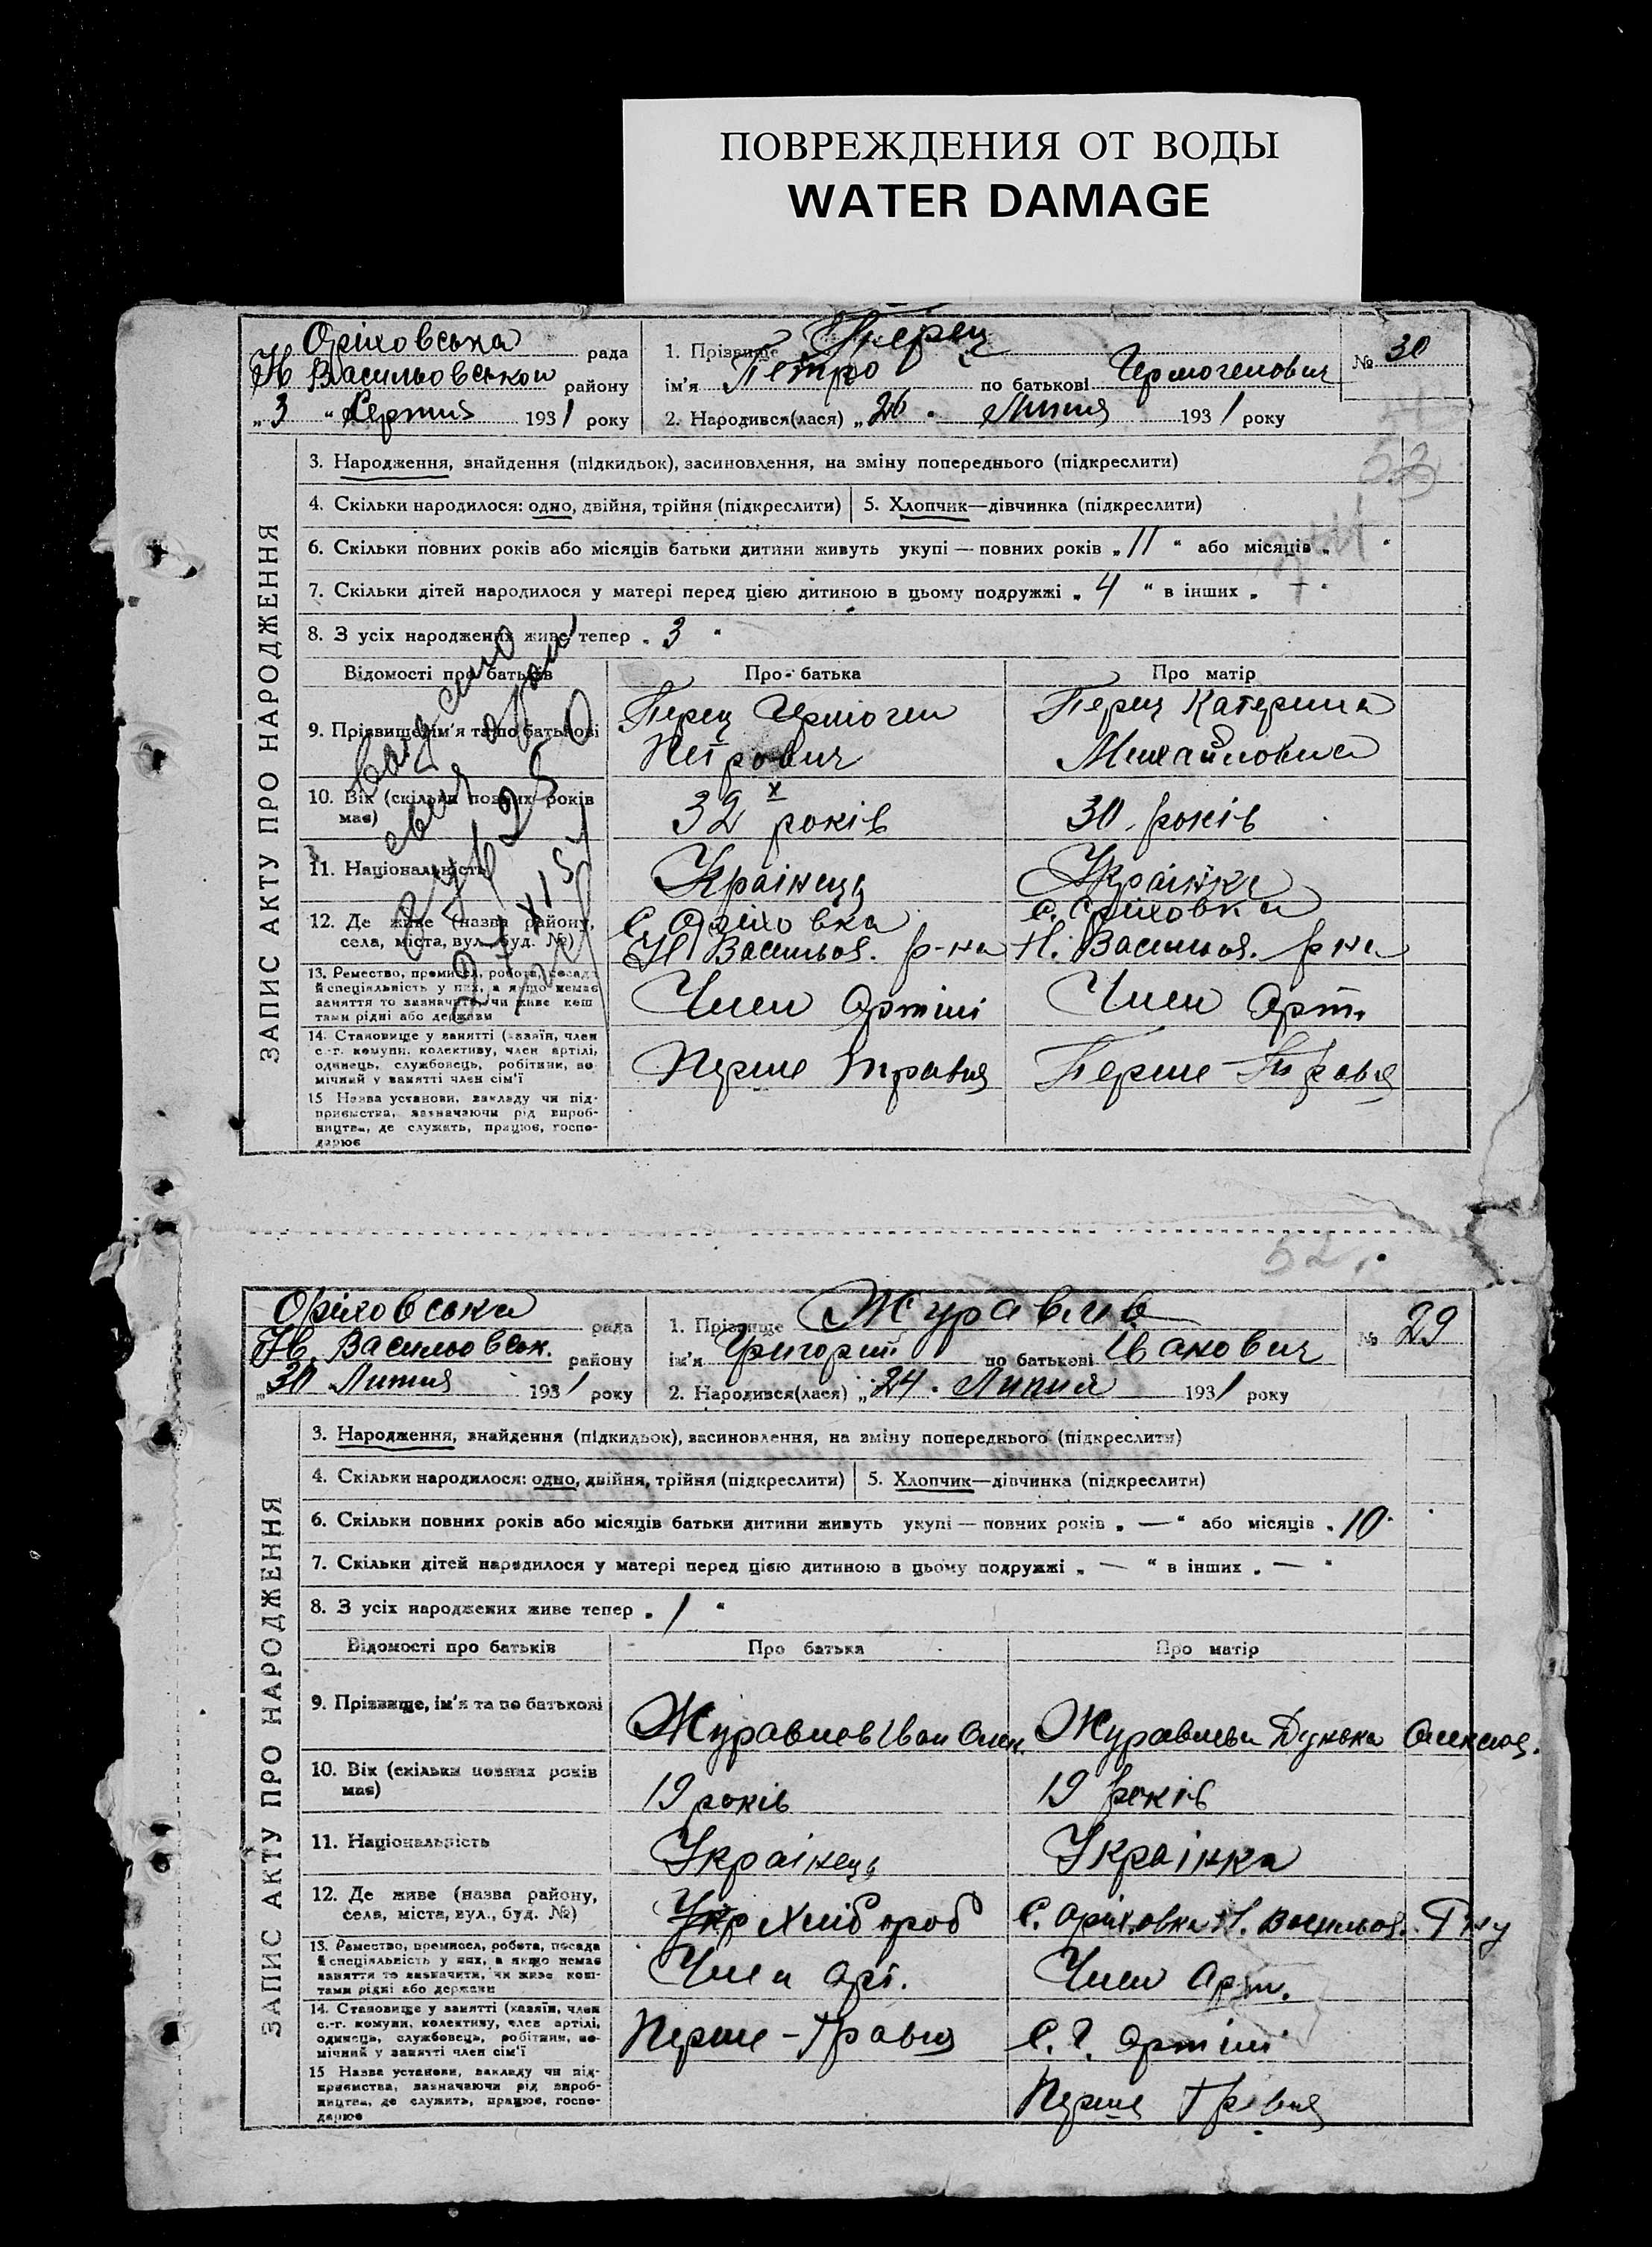 ПОВРЕЖДЕНИЯ ОТ ВОДЫ
WATER DAMAGE
Оріховська рада
Н Васильовськои району
„3 “ Серпня 1931 року
1. Прізвище Перец
ім'я Петро по батькові Гермогенович
2. Народився(лася) „26. Липня 1931 року
№ 30
53
ЗАПИС АКТУ ПРО НАРОДЖЕННЯ
3. Народження, знайдення (підкидьок), засиновлення, на зміну попереднього (підкреслити)
4. Скільки народилося: одно, двійня, трійня (підкреслити) 5. Хлопчик—дівчинка (підкреслити)
6. Скільки повних років або місяців батьки дитини живуть укупі — повних років „ 11 “ або місяців „ “
7. Скільки дітей народилося у матері перед цією дитиною в цьому подружжі „ 4 “ в інших „
8. З усіх народжених живе тепер „ 3 “
Відомості про батьків Про батька Про матір
9. Прізвище, ім'я та по батькові
Перец Гермоген
Петрович
Перец Катерина
Михайловна
10. Вік (скільки повних років має)
32 років 30 років
11. Національність
Украінець Украінка
12. Де живе (назва району, села, міста, вул., буд. №)
С. Оріховка
Н Васильов. р-на
С. Оріховка
Н. Васильов. р на
13. Ремество, промисел, робота, посада й спеціяльність у них, а якщо немає заняття то зазначити, чи живе кош тами рідні або держави
Член Артілі Член Арт.
14. Становище у занятті (хазяїн, член с.-г. комуни, колективу, член артілі, одинець, службовець, робітник, по мічний у занятті член сім'ї
Перше Травня Перше Травня
15 Назва установи, закладу чи під- приємства, зазначаючи рід вироб- ництва, де служить, працює, госпо- дарює
52
Оріховська рада
Н. Васильовськ. району
„30 Липня 1931 року
1. Прізвище Журавлів
ім'я Григорій по батькові Іванович
2. Народився(лася) „24. Липня 1931 року
№ 29
ЗАПИС АКТУ ПРО НАРОДЖЕННЯ
3. Народження, знайдення (підкидьок), засиновлення, на зміну попереднього (підкреслити)
4. Скільки народилося: одно, двійня, трійня (підкреслити) 5. Хлопчик—дівчинка (підкреслити)
6. Скільки повних років або місяців батьки дитини живуть укупі — повних років „ — “ або місяців „ 10
7. Скільки дітей народилося у матері перед цією дитиною в цьому подружжі „ — “ в інших „ — “
8. З усіх народжених живе тепер „ 1 “
Відомості про батьків Про батька Про матір
9. Прізвище, ім'я та по батькові
Журавлев Іван Журавльва
10. Вік (скільки повних років має)
19 років 19 років
11. Національність
Украінець Украінка
12. Де живе (назва району, села, міста, вул., буд. №)
Укр Хлібороб С. Оріховка Н. Васильов.
13. Ремество, промисел, робота, посада й спеціяльність у них, а якщо немає заняття то зазначити, чи живе кош- тами рідні або держави
Член Арт. Член Арт.
14. Становище у занятті (хазяїн, член с.-г. комуни, колективу, член артілі, одинець, службовець, робітник, по- мічний у занятті член сім'ї
Перше-Травня С. Г. Артілі
15 Назва установи, закладу чи під- приємства, зазначаючи рід вироб- ництва, де служить, працює, госпо- дарює
Перше Травня